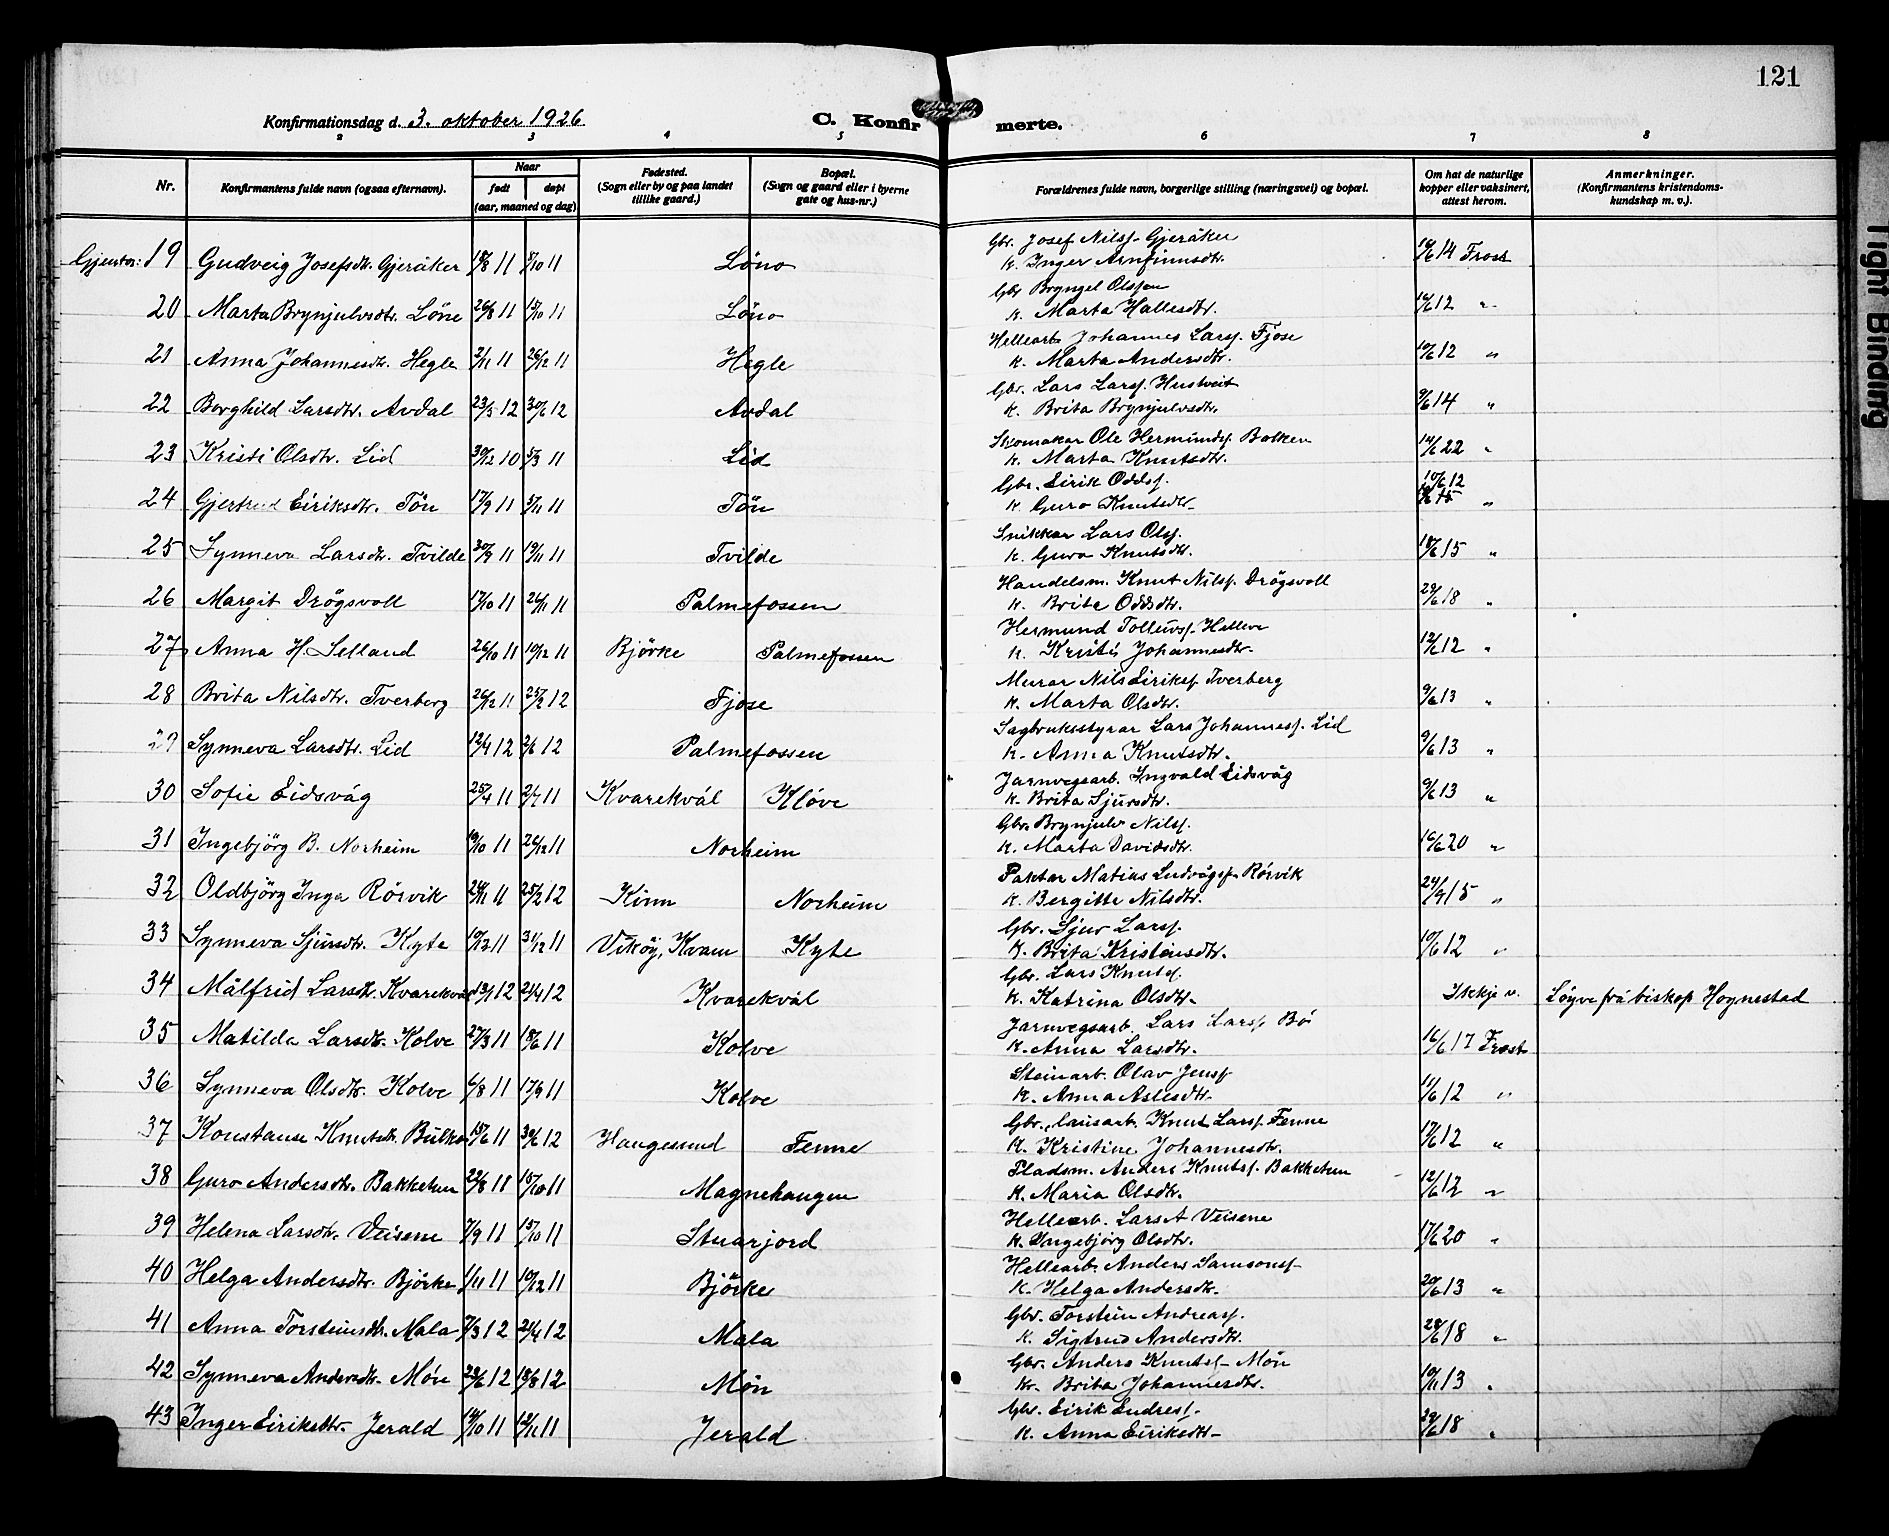 121
Konfirmationsdag d. 3. oktober 1926.
C. Konfirmerte.
2 3 4 5 6 7 8
Nr.
Konfirmantens fulde navn (ogsaa efternavn).
Naar
født
døpt
(aar, maaned og dag)
Fødested.
(Sogn eller by og paa landet
tillike gaard.)
Bopæl.
(Sogn og gaard eller i byerne
gate og hus-nr.)
Forældrenes fulde navn, borgerlige stilling (næringsvei) og bopæl.
Om hat de naturlige
kopper eller vaksinert,
attest herom.
Anmerkninger.
(Konfirmantens kristendoms-
kundskap m. v.).
Gjentor: 19 Gudveig Josefsdtr. Gjeråker 18/8 11 8/10 11 Löno Gbr. Josef Nilss. Gjeråker
k. Inger Arnfinnsdtr. 14 Frost
20 Marta Brynjulvsdtr. Löne 26/8 11 15/10 11 Löno Gbr Bryngel Olssen
k. Marta Hallesdtr. 12 "
21 Anna Johannesdtr. Hegle 2/11 11 26/12 11 Hegle Hellearb. Johannes Larss. Fjose
k. Marta Andersdtr. 10/6 12 "
22 Borghild Larsdtr. Avdal 23/5 12 30/6 12 Avdal Gbr. Lars Larss. Hustveit
k. Brita Brynjulvsdtr. 9/6 14 "
23 Kristi Olsdtr. Lid 30/12 10 5/3 11 Lid Skomakar Ole Hermundss. Bolken
k. Marta Knutsdtr. 14/6 22 "
24 Gjertrud Eiriksdtr. Tön 17/9 11 5/11 11 Tön Gbr. Eirik Oddss.
k. Guro Knutsdtr. 10/6 12 "
25 Synneva Larsdtr. Tvilde 30/9 11 19/11 11 Tvilde Snikkar Lars Olss.
k. Guro Knutsdtr. 18/6 15 "
26 Margit Drögsvoll 17/10 11 26/11 11 Palmefossen Handelsm. Knut Nilss. Drögsvoll
k. Brita Oddsdtr. 29/6 18 "
27 Anna H. Selland 26/10 11 10/12 11 Björke Palmefossen Hermund Tolleivss. Helleve
k. Kristi Johannesdtr. 12/6 12 "
28 Brita Nilsdtr. Tverberg 26/12 11 25/2 12 Fjose Murar Nils Eirikss. Tverberg
k. Marta Olsdtr. 9/6 13 "
29 Synneva Larsdtr. Lid 12/4 12 2/6 12 Palmefossen Sagbruksstyrar Lars Johanness. Lid
k. Anna Knutsdtr. 9/6 13 "
30 Sofie Eidsvåg 25/4 11 2/7 11 Kvarekvål Klöve Jarnvegsarb. Ingvald Eidsvåg
k. Brita Sjursdtr. 9/6 13 "
31 Ingebjörg B. Norheim 19/10 11 26/12 11 Norheim Gbr. Brynjulv Nilss.
k. Marta Davidsdtr. 16/6 20 "
32 Oldbjörg Inga Rörvik 24/11 11 25/2 12 Kinn Norheim Paktar Matias Ludvigss. Rörvik
k. Bergitte Nilsdtr. 24/9 15 "
33 Synneva Sjursdtr. Kyte 10/12 11 31/12 11 Vikøy, Kvam Kyte Gbr. Sjur Larss.
k. Brita Kristensdtr. 10/6 12 "
34 Målfrid Larsdtr. Kvarekvål 13/1 12 21/4 12 Kvarekvål Gbr. Lars Knutss.
k. Katrina Olsdtr. Ikkje v. Löyve frå biskop Hognestad
35 Matilda Larsdtr. Kolve 27/3 11 18/6 11 Kolve Jarnvegsarb. Lars Larss. Bö
k. Anna Larsdtr. 16/6 17 Frost
36 Synneva Olsdtr. Kolve 6/8 11 17/9 11 Kolve Steinarb. Olav Jenss.
k. Anna Aslesdtr. 11/6 12 "
37 Konstanse Knutsdtr. Bulko 15/6 11 30/6 12 Haugesund Fenne Gbr., Knut Larss. Fenne
k. Kristine Johannesdtr. 17/6 12 "
38 Guro Andersdtr. Bakketun 22/8 11 15/10 11 Magnehaugen Pladsm. Anders Knutss. Bakketun
k. Maria Olsdtr. 12/6 12 "
39 Helena Larsdtr. Veisene 7/9 11 15/10 11 Stuarjord Hellearb. Lars A Veisene
k. Ingebjörg Olsdtr. 17/6 20 "
40 Helga Andersdtr. Björke 1/11 11 10/12 11 Björke Hellearb. Anders Samsonss.
k. Helga Andersdtr. 20/6 13 "
41 Anna Torsteinsdtr. Mala 7/3 12 21/4 12 Mala Gbr. Torstein Andreass.
k. Sigtrud Andersdtr. 28/6 18 "
42 Synneva Andersdtr. Mön 23/6 12 18/8 12 Mön Gbr. Anders Knutss. Mön
k. Brita Johannesdtr. 10/11 13 "
43 Inger Eiriksdtr. Jerald 14/10 11 12/11 11 Jerald Gbr. Eirik Endress.
k. Anna Eiriksdtr. 29/6 18 "
Tight Binding